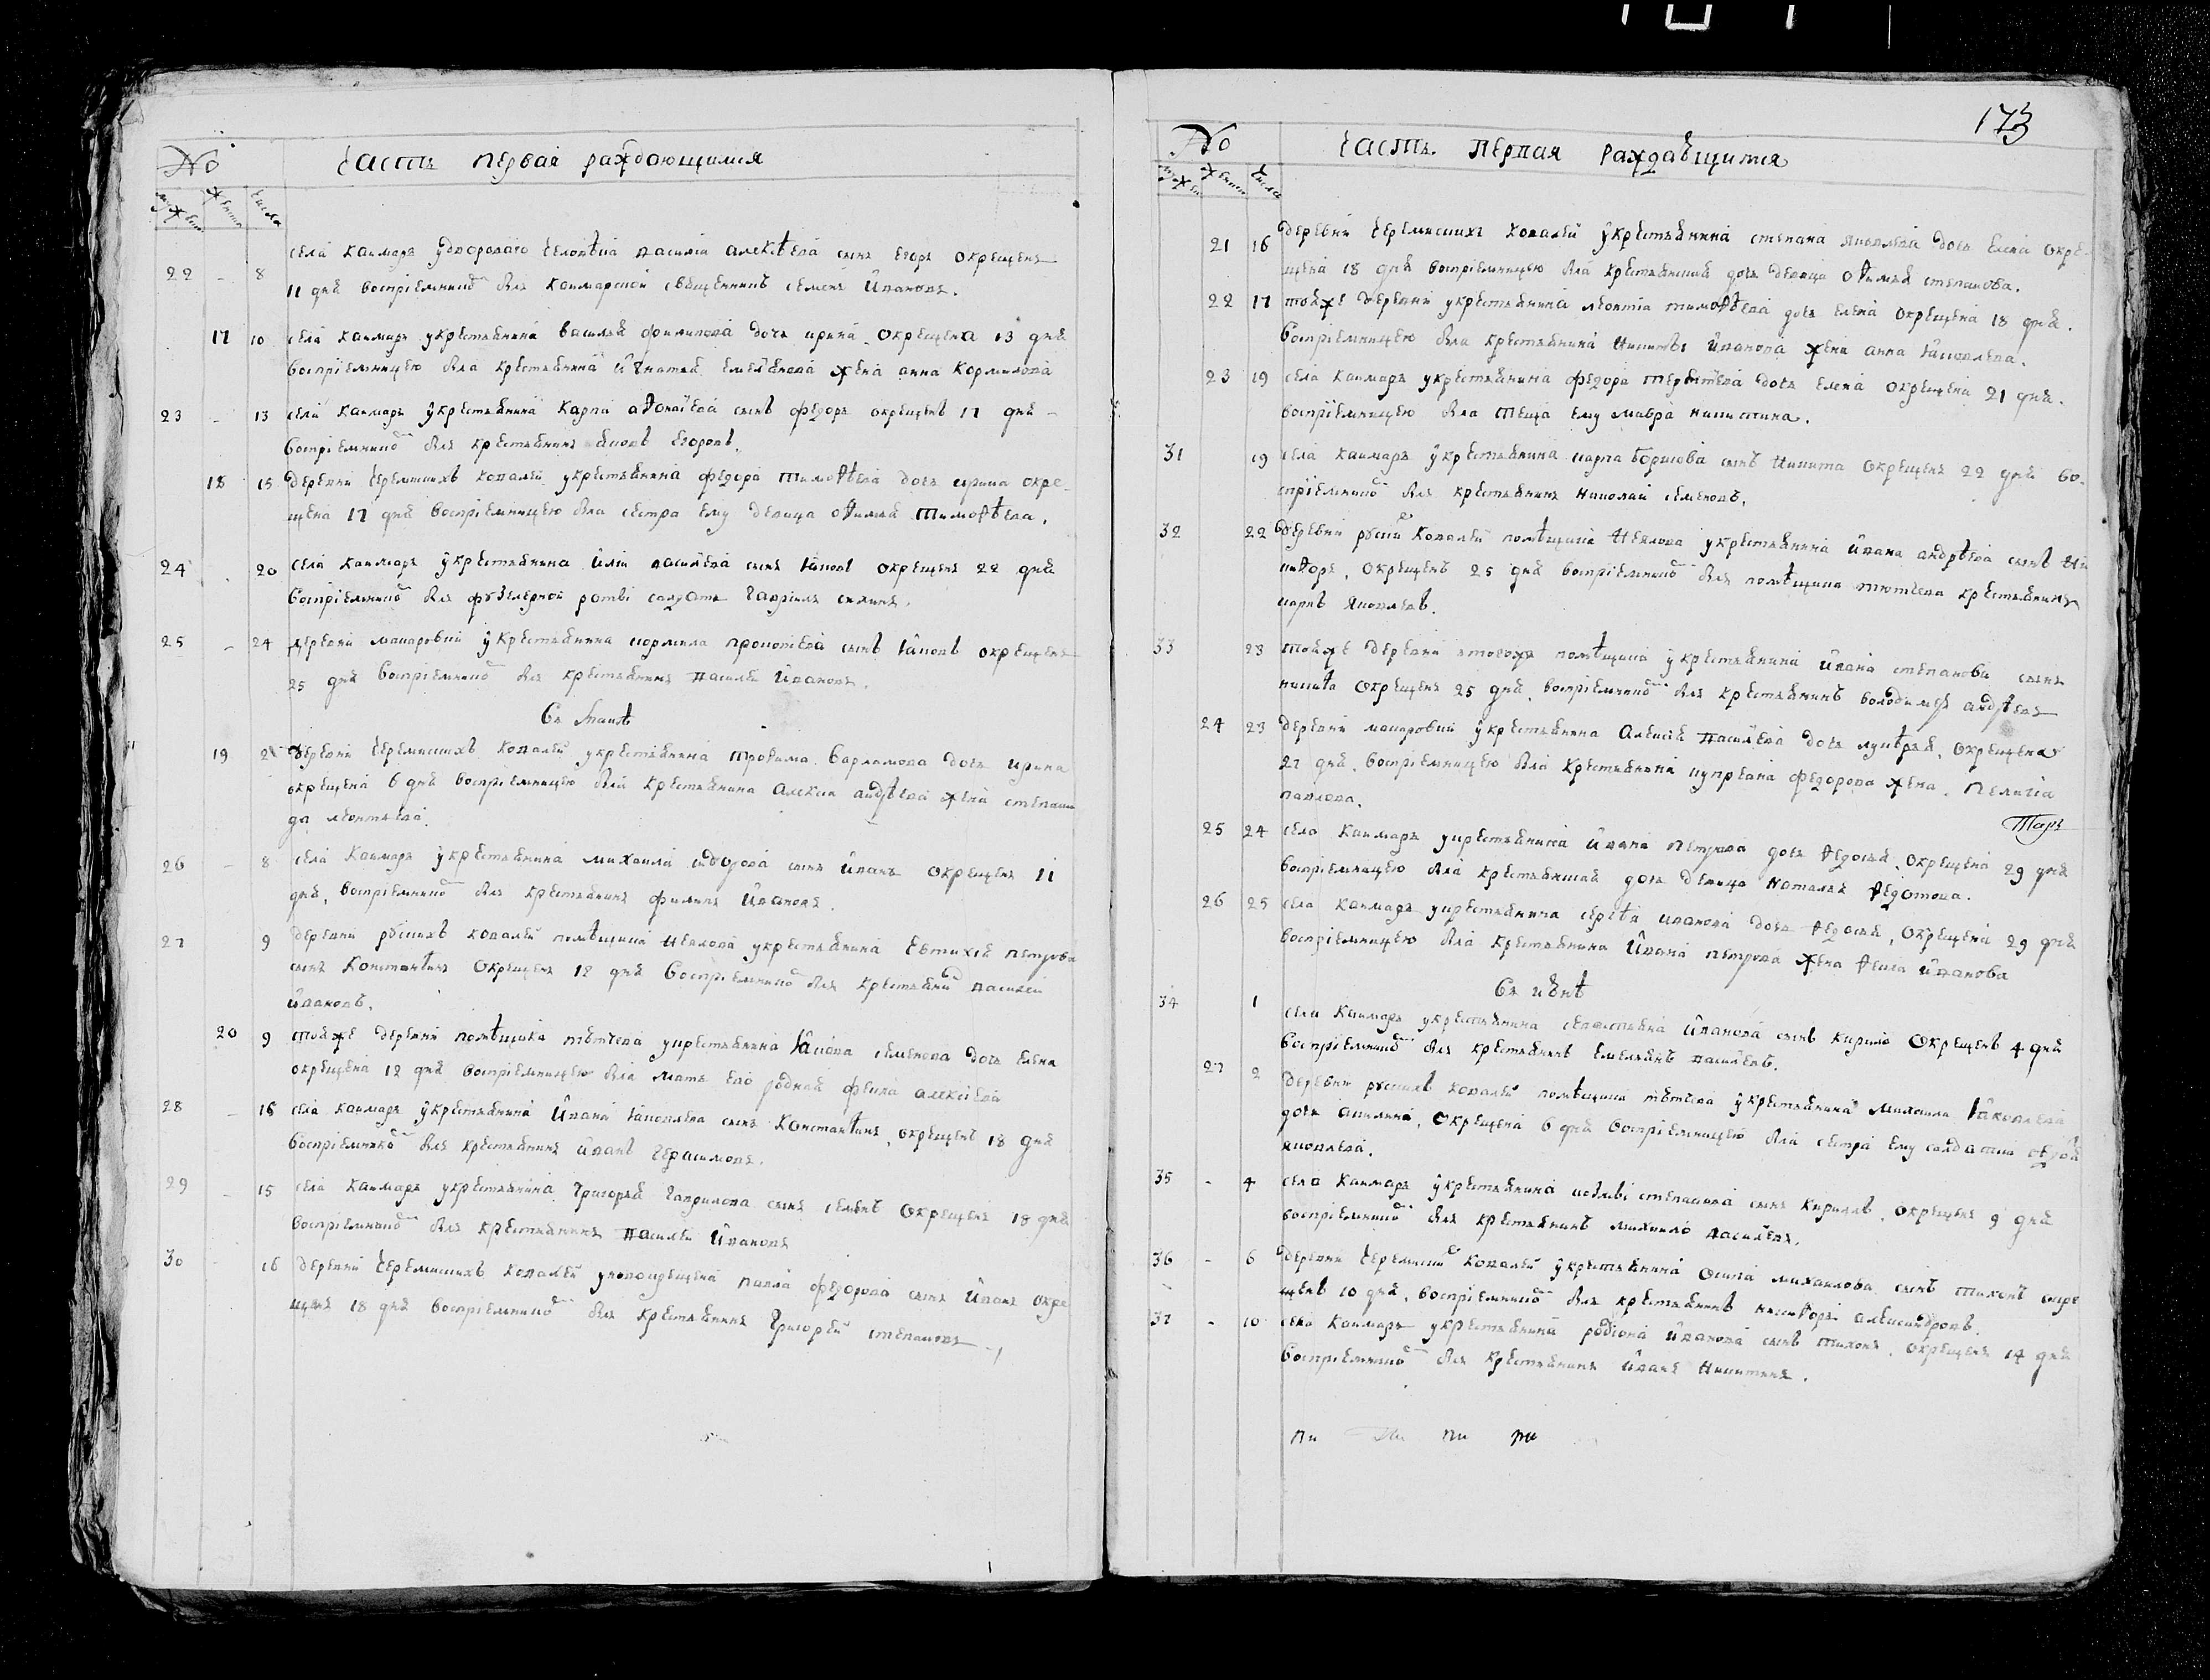 № часть первая раждающимся
мужеск женск числа
села Каимаръ у дворового человѣка василiя алексѣева сынъ Егоръ окрещенъ
22 - 8
11 дня воспрiемникомъ былъ Каимарской священникъ семенъ Ивановъ.
17 10 села Каимаръ укрестьянина василья филипова дочь ирина окрещена 13 дня
воспрiемницею была крестьянина игнатья емельянова жена анна Кормилова
23 - 13 села Каимаръ укрестьянина Карпа афонасiева сынъ федоръ окрещенъ 17 дня
воспрiемникомъ былъ крестьянинъ яковъ Егоровъ.
18 15 деревни черемискихъ ковалей укрестьянина федора тимофѣева дочь ирина окре-
щена 17 дня воспрiемницею была сестра ему девица офимья тимофѣева.
24 20 села каимаръ укрестьянина илiи василева сынъ iаковъ окрещенъ 22 дня
воспрiемникомъ былъ фузелерной роты салдатъ гаврилъ
25 - 24 деревни макаровки укрестьянина кормила прокопiева сынъ iаковъ окрещенъ
25 дня воспрiемникомъ былъ крестьянинъ василей Ивановъ.
Въ маiѣ
19 2 деревни черемискихъ ковалей укрестьянина трофима варламова дочь ирина
окрещена 6 дня воспрiемницею была крестьянина алексея андрѣева жена степани
да леонтьева.
26 - 8 села Каимаръ укрестьянина михаила сынъ Иванъ окрещенъ 11
дня, воспрiемникомъ былъ крестьянинъ филипъ Ивановъ.
27 9 деревни рускихъ ковалей помѣщика Неелова укрестьянина Евтихiя петрова
сынъ Константинъ окрещенъ 12 дня воспрiемникомъ былъ крестьянинъ василей
ивановъ.
20 9 тойже деревни помѣщика тютчева укрестьянина iакова семенова дочь елена
окрещена 12 дня воспрiемницею была мать его родная фекла алексiева
28 - 16 села каимаръ укрестьянина Ивана iаковлева сынъ Константинъ, окрещенъ 18 дня
воспрiемникомъ былъ крестьянинъ иванъ герасимовъ.
29 - 15 села Каимаръ укрестьянина григорья гаврилова сынъ семенъ окрещенъ 18 дня
воспрiемникомъ былъ крестьянинъ василей Ивановъ
30 - 16 деревни черемискихъ ковалей уновокрещена павла федорова сынъ Иванъ окре
щенъ 18 дня воспрiемникомъ былъ крестьянинъ григорей степановъ
173
№ часть первая раждавщимся
мужеск женск числа
21 16 деревни черемискихъ ковалей укрестьянина степана яковлева дочь елена окре-
щена 18 дня воспрiемницею была крестьянская дочь девица офимья степанова.
22 17 тойже деревни укрестьянина леонтiа тимофѣева дочь елена окрещена 18 дня.
воспрiемницею была крестьянина никиты иванова жена анна iаковлева.
23 19 села каимаръ укрестьянина федора терентѣева дочь елена окрещена 21 дня.
воспрiемницею была теща ему мавра никитина.
31 19 села каимаръ укрестьянина карпа борисова сынъ никита окрещенъ 22 дня во-
спрiемникомъ былъ крестьянинъ николай семеновъ.
32 22 деревни рускихъ ковалей помѣщика Неелова укрестьянина ивана андрѣева сынъ ни
кифоръ, окрещенъ 25 дня воспрiемникомъ былъ помѣщика тютчева крестьянинъ
карпъ яковлевъ.
33 23 тойже деревни этогожъ помѣщика укрестьянина ивана степанова сынъ
никита окрещенъ 25 дня, воспрiемникомъ былъ крестьянинъ володимеръ андрѣевъ
24 23 деревни макаровки укрестьянина алексiя василева дочь лукѣрья, окрещена
27 дня, воспрiемницею была крестьянина купреяна федорова жена, пелагiа
павлова.
25 24 села каимаръ укрестьянина ивана петрова дочь федосья, окрещена 29 дня
воспрiемницею была крестьянская дочь девица наталья федотова.
26 25 села каимаръ укрестьянина сергѣя иванова дочь федосья, окрещена 29 дня
воспрiемницею была крестьянина Ивана петрова жена фекла иванова
Въ iюнѣ
34 1
села Каимаръ укрестьянина севастьяна иванова сынъ кирило окрещенъ 4 дня
воспрiемникомъ былъ крестьянинъ емельянъ василевъ.
27 2 деревни рускихъ ковалей помѣщика тютчева укрестьянина михаила iаковлева
дочь акилина, окрещена 6 дня воспрiемницею была сестра ему салдатка
яковлева.
35 - 4 села каимаръ укрестьянина степанова сынъ кирилъ, окрещенъ 9 дня
воспрiемникомъ былъ крестьянинъ михаило василевъ.
36 - 6 деревни черемискихъ ковалей укрестьянина осипа михаилова сынъ тихонъ окре
щенъ 10 дня, воспрiемникомъ былъ крестьянинъ никифоръ александровъ.
37 - 10 села Каимаръ укрестьянина родiона иванова сынъ тихонъ, окрещенъ 14 дня
воспрiемникомъ былъ крестьянинъ иванъ Никитинъ.